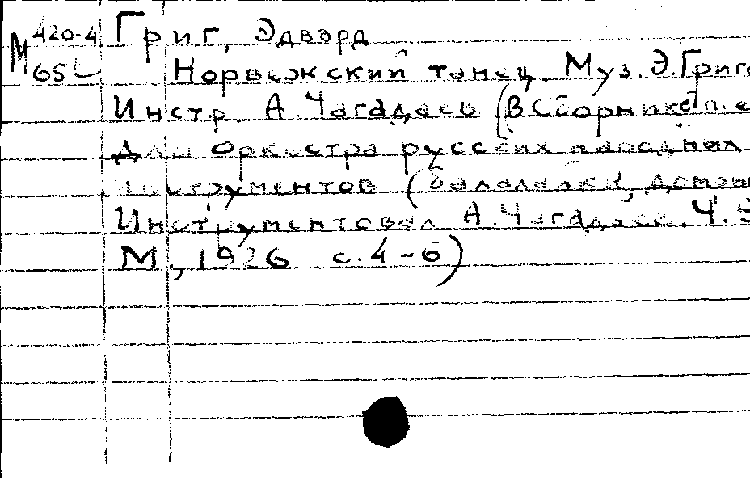 М 420-4
65
Григ, Эдвард
Норвежский танец. Муз. Э. Григ
Инстр. А. Чагадаев (В Сборнике
Для оркестра русских народных
инструментов (балалайки,
Инструментовал А. Чагадаев. Ч.
М, 1926 с. 4-6)